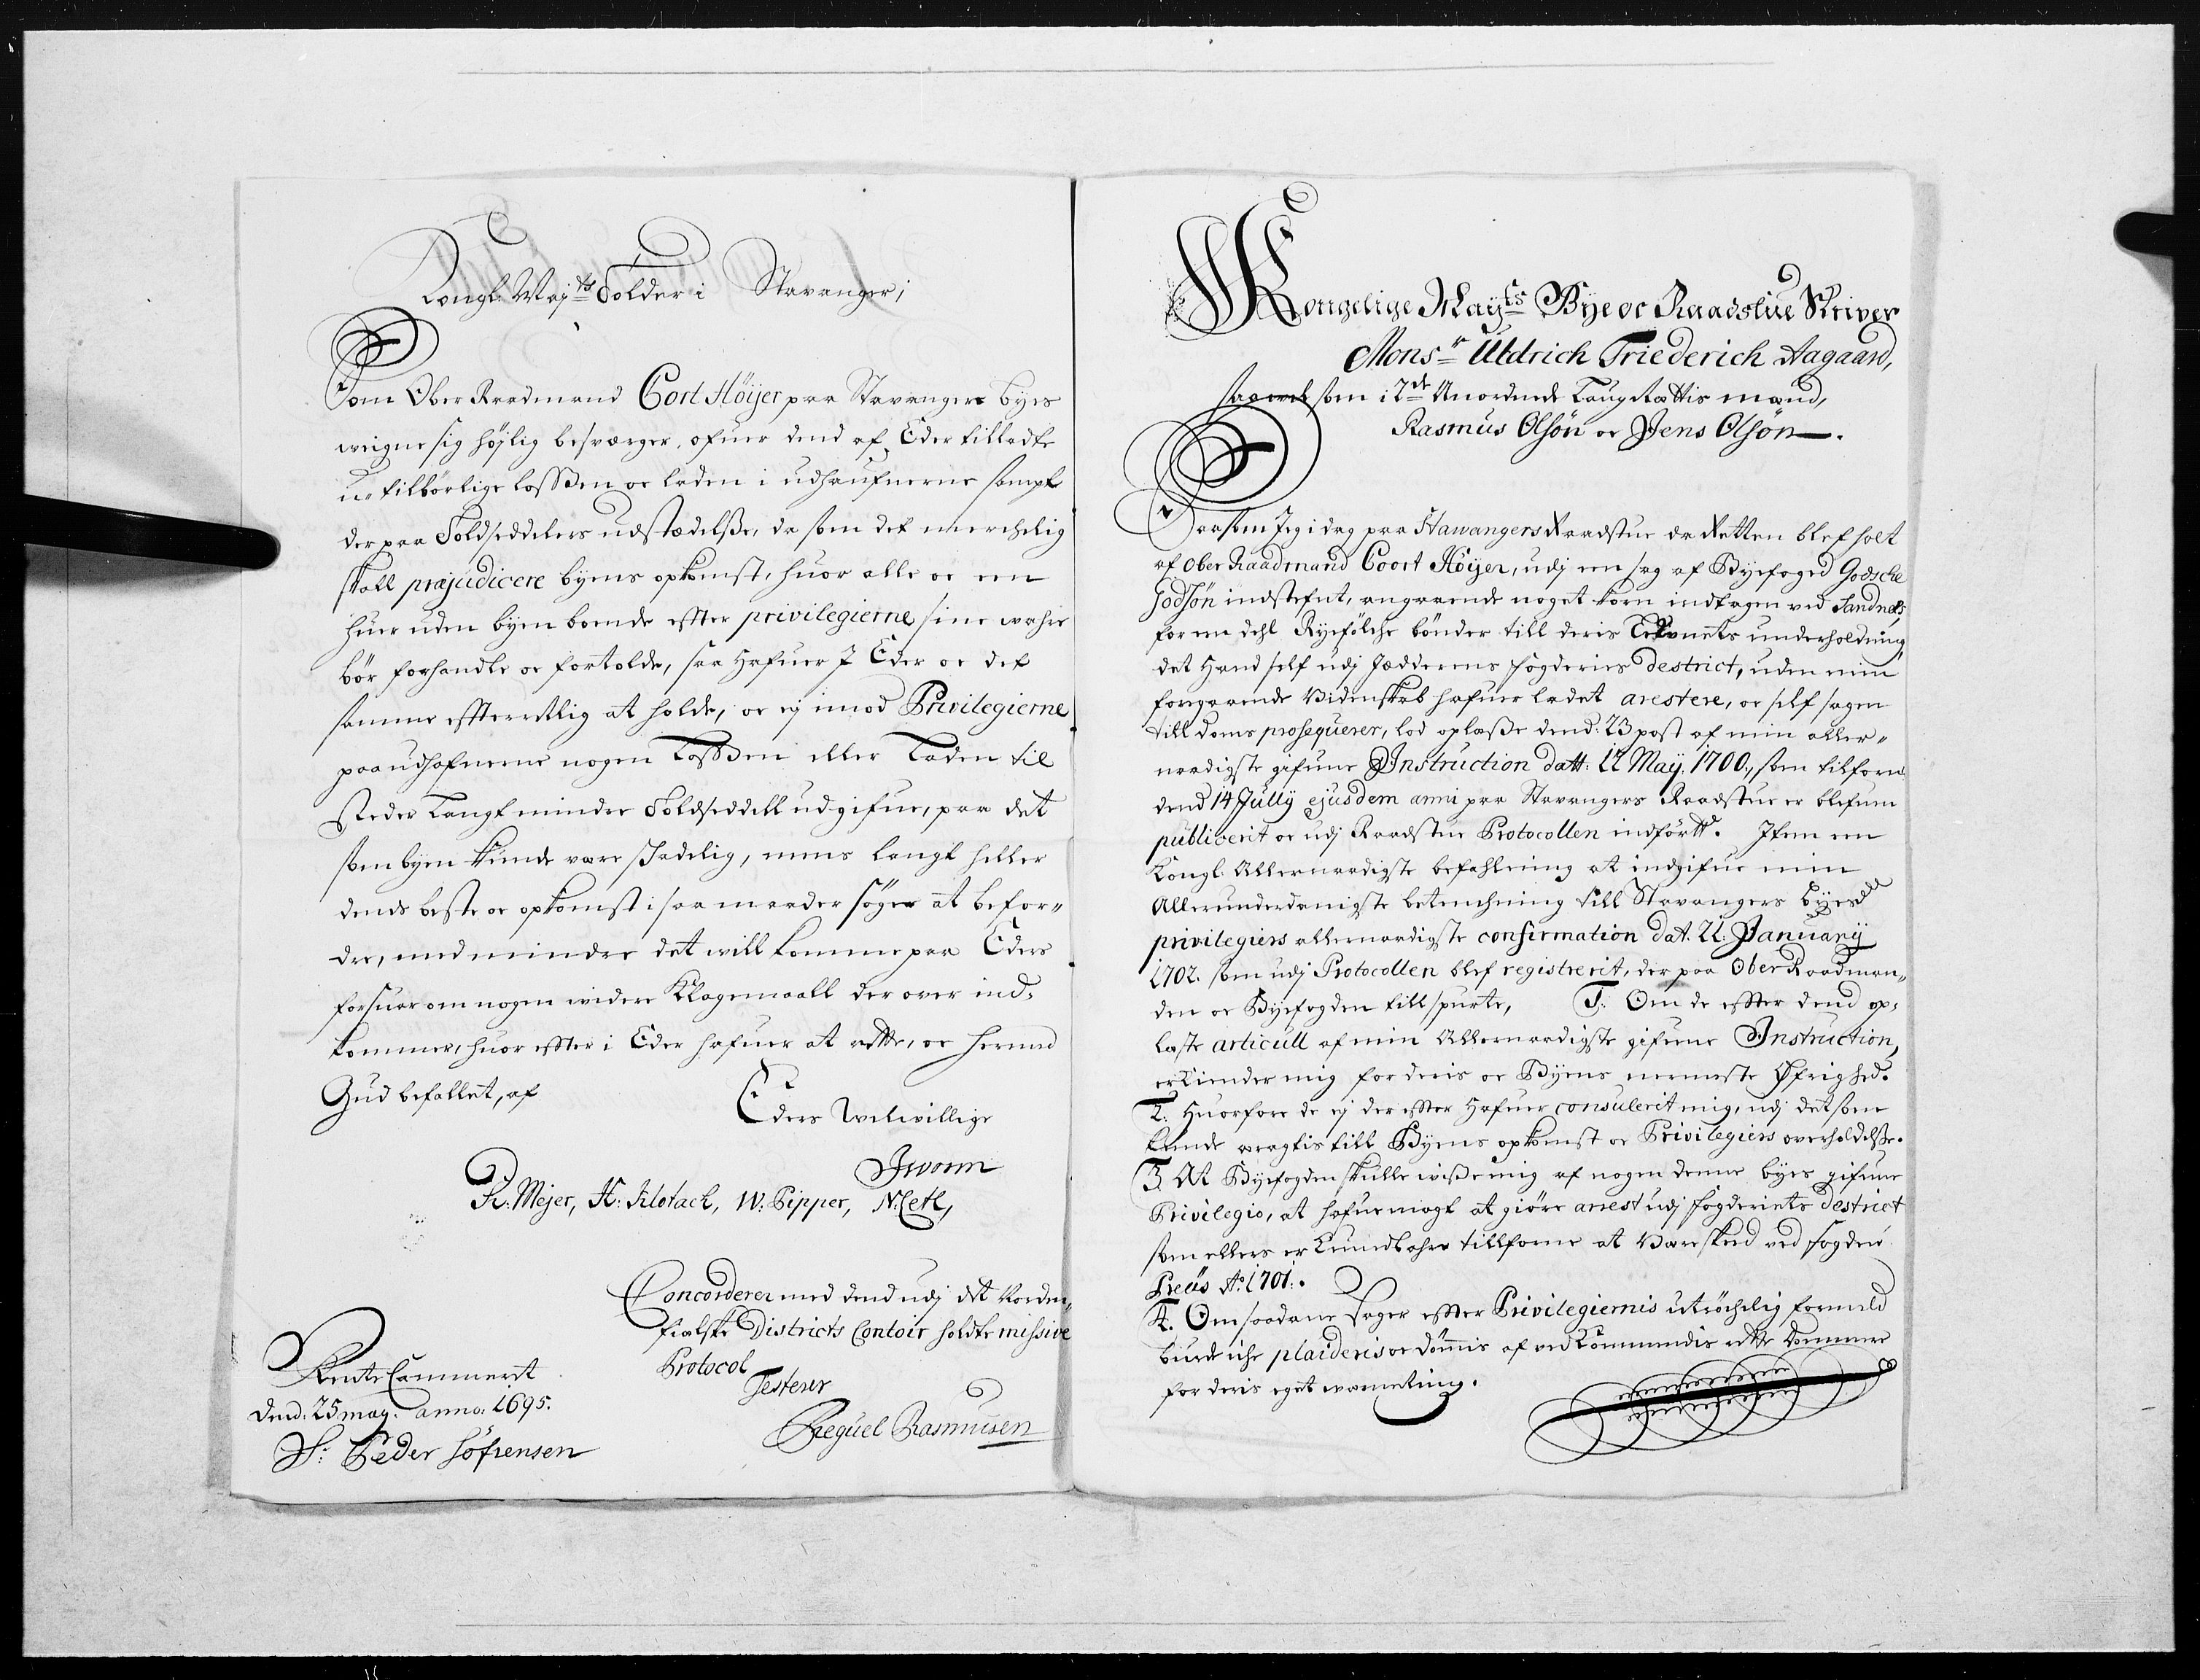 Kongl: Maj:ts Tolder i Stavanger;
Som Ober Raadmand Cort Höijer paa Stavangers byes
weigne sig höjlig besværger, ofuer dend af Eder tilladte
u-tilbörlige loßen oc laden i udhaufnerne sampt
der paa Toldseddelers udstædelße, da som det mercheligt
skall præjudicere byens opkomst, huor alle oc een
huer uden byen boende effter privilegierne sine wahre
bör forhandle oc fortolde, saa hafuer I Eder oc det
samme effterretlig at holde, oc ej imod Privilegierne
paa udhafnerne nogen Loßen eller Laden til
steder langt minder Toldseddell udgifue, paa det
som byen kunde være skadelig, mens langt heller
dends beste oc opkomst i saa maader söger at befor-
dre, med mindre det will komme paa Eders
forsuar om nogen widere Klagemaall der over ind-
kommer, huor effter i Eder hafuer at rette, oc hermed
Gud befallet, af
Eders Welwillige
Jworm
R: Mejer, H: Slotach, W: Pipper, N: Cetl,
Concorderer med dend udj det Norden-
fialske Districts Contoir holdte missive
Protocol
Testerer
Preguel Rasmusen
Rente Cammerit
dend: 25 may. anno: 1695.
S: Peder Söfrensen
Kongelige Mayts Bye oc Raadstue Skriver
Monsr Uldrich Friederich Aagaard,
saavelsom i 2de Anordnede Laugrettis mænd,
Rasmus Olsön oc Jens Olsön.
Saasom Jeg i dag paa Stawangers Raadstue da Retten blef holt
af Ober Raadmand Coort Höijer, udj een sag af Byefoged Godsche
Godsön indstefnt, angaaende noget korn indtagen ved Sandnes,
for een dehl Ryefölche bönder till deris underholdning
det hand self udj Jædderens fogderies destrict, uden min
foregaaende Videnskab hafuer ladet arestere, oc self sagen
till doms prosequerer, lod oplæße dend: 23 post af min aller-
naadigste gifuene Instruction datt: 11 May. 1700., som tilforn
dend 14 Jully ejusdem anni paa Stavangers Raadstue er blefuen
publicerit oc udj Raadstue Protocollen indfört. Item een
Kongl: Allernaadigste befahlning at indgifue min
Allerunderdanigste betenchning till Stavangers byes
privilegiers allernaadigste confirmation dat. 22: January
1702. som udj Protocollen blef registrerit, der paa Ober Raadman-
den oc Byefogden tillspurte, 1. Om de effter dend op-
læste articull af min Allernaadigste gifuene Instruction,
erkiender mig for deris oc Byens nermeste Öfrighed.
2. Huorfore de ej der effter hafuer consulerit mig, udj det som
kunde ragtis till Byens opkomst oc Privilegiers overholdelße.
3. At Byefogden skulle wiße mig af nogen denne byes gifuene
Privilegio, at hafue magt at giöre arrest udj fogderiets destrict
som ellers er kundbahr tillforne at være skeed ved fogden
Preüs Ao: 1701:.
4. Om saadane sager effter Privilegiernis udtröchelig formeld
burde iche plaideris oc dömmis af vedkommendis rette Dommere
for deris eget værneting.